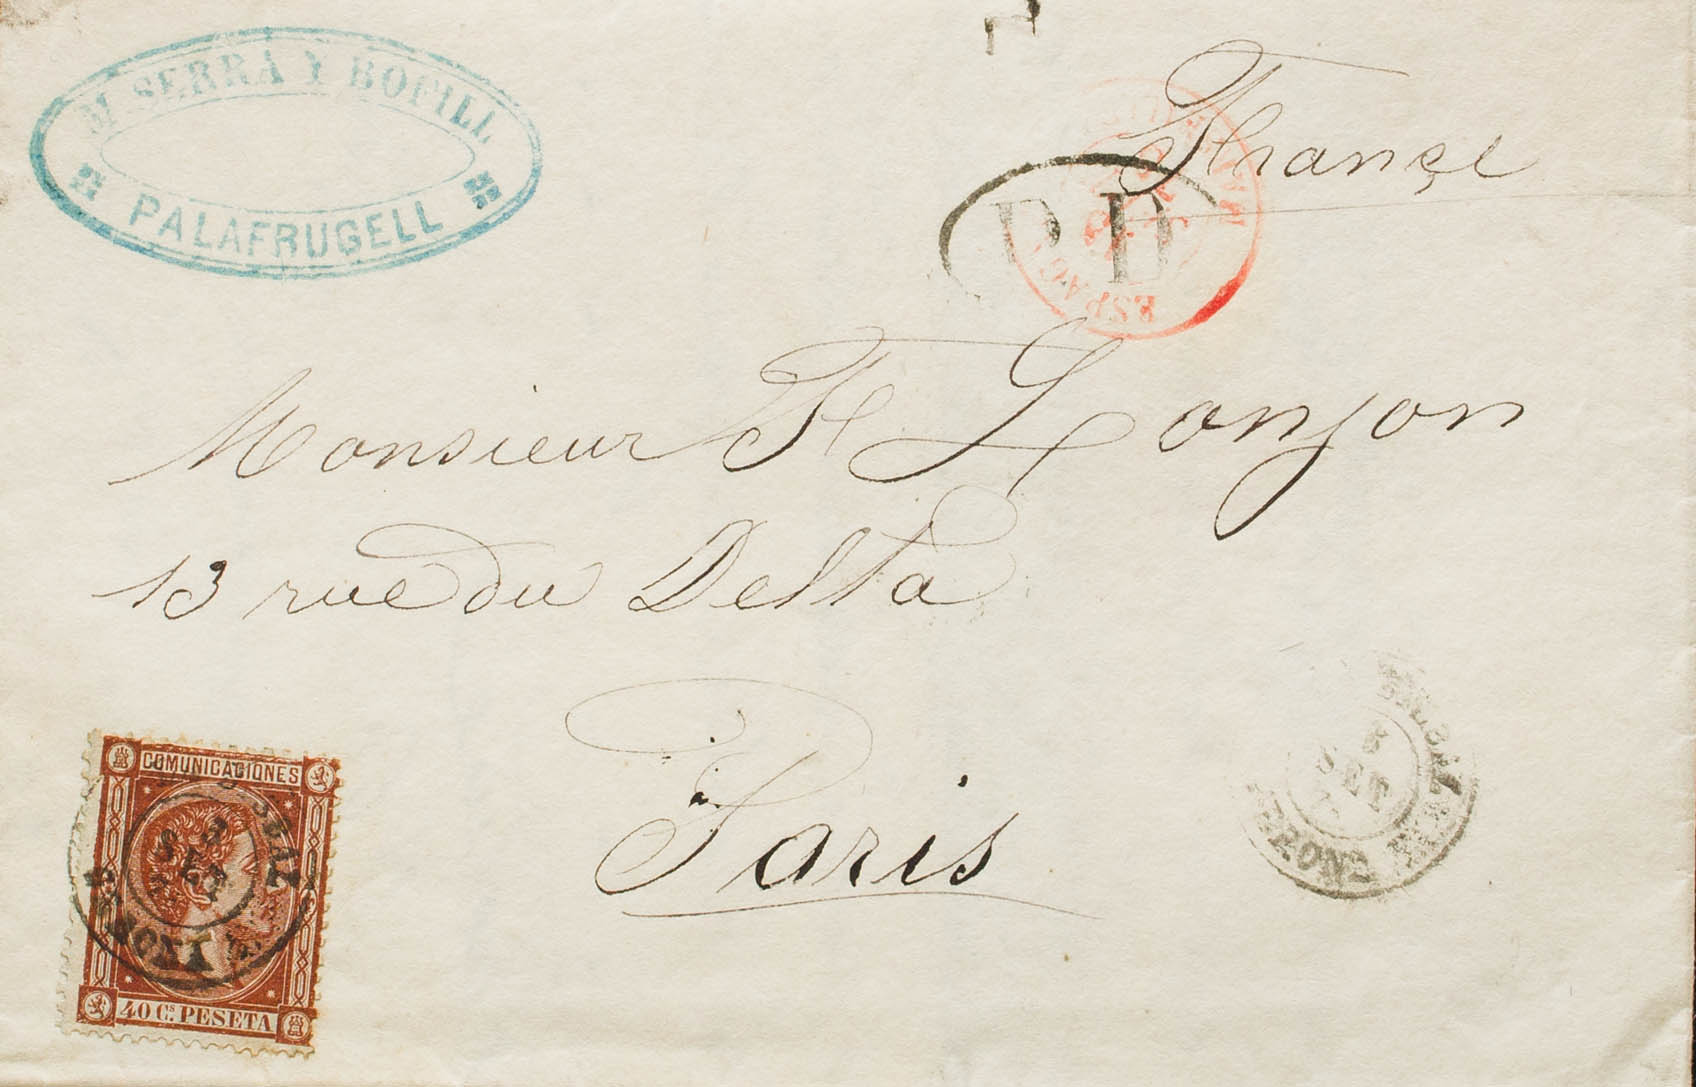 M. SERRA Y BOFILL
PALAFRUGELL
Françe
P.D
ESPAG
Monsieur F Lonjon
13 rue du Delta
Paris
COMUNICACIONES
40 C.s PESETA
3
SET
SET
GERONA